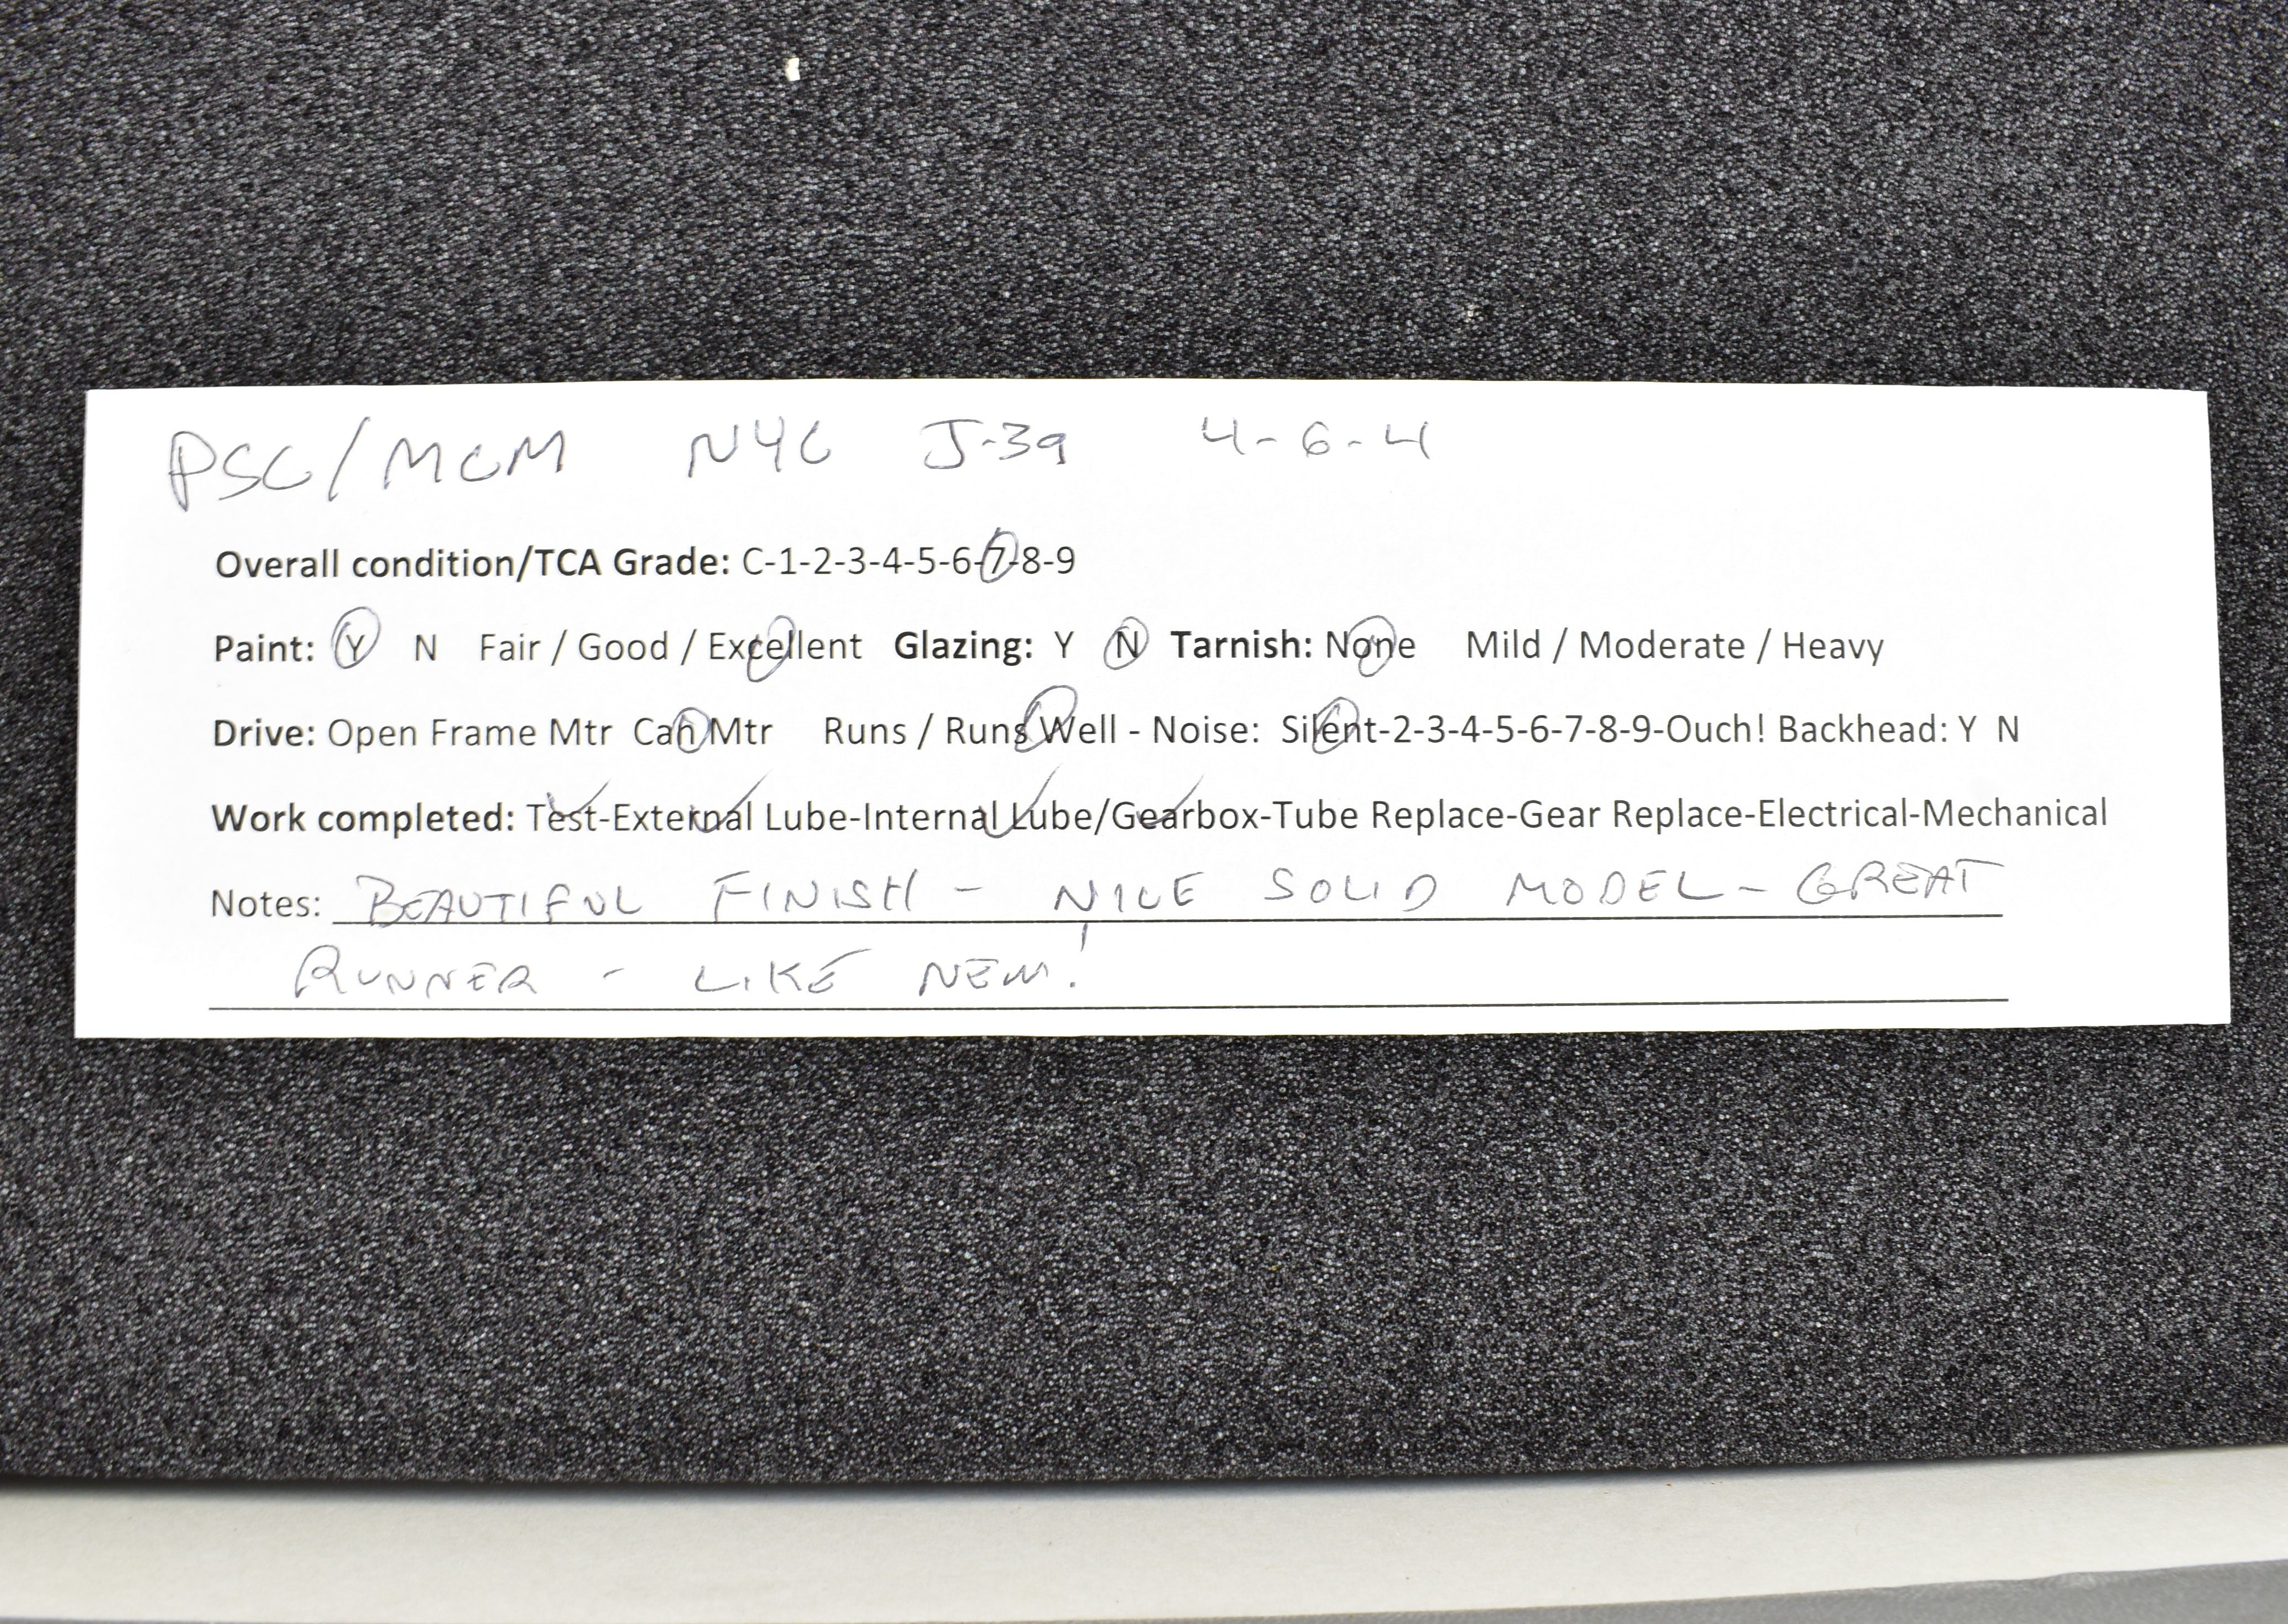 PSC/MCM NYC J-3a 4-6-4
Overall condition/TCA Grade: C-1-2-3-4-5-6-7-8-9
Paint: Y N Fair / Good / Excellent Glazing: Y N Tarnish: None Mild / Moderate / Heavy
Drive: Open Frame Mtr Can Mtr Runs / Runs Well - Noise: Silent-2-3-4-5-6-7-8-9-Ouch! Backhead: Y N
Work completed: Test-External Lube-Internal Lube/Gearbox-Tube Replace-Gear Replace-Electrical-Mechanical
Notes: BEAUTIFUL FINISH - NICE SOLID MODEL - GREAT
RUNNER - LIKE NEW!